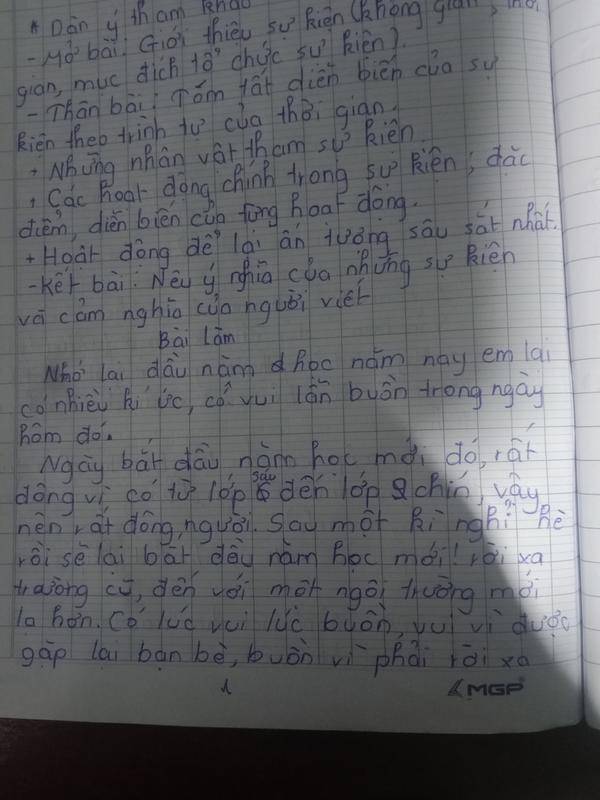 * Dàn ý tham khảo
- Mở bài: Giới thiệu sự kiện (không gian, thời
gian, mục đích tổ chức sự kiện).
- Thân bài: Tóm tắt diễn biến của sự
kiện theo trình tự của thời gian.
+ Những nhân vật tham sự kiện.
+ Các hoạt động chính trong sự kiện; đặc
điểm, diễn biến của từng hoạt động.
+ Hoạt động để lại ấn tượng sâu sắt nhất.
- Kết bài: Nêu ý nghĩa của những sự kiện
và cảm nghĩa của người viết
Bài làm
Nhớ lại đầu năm học năm nay em lại
có nhiều kí ức, có vui lẫn buồn trong ngày
hôm đó.
Ngày bắt đầu năm học mới đó, rất
đông vì có từ lớp sáu đến lớp chín, vậy
nên rất đông, người. Sau một kì nghỉ hè
rồi sẽ lại bắt đầu năm học mới! rời xa
trường cũ, đến với một ngôi trường mới
lạ hơn. Có lúc vui lúc buồn, vui vì được
gặp lại bạn bè, buồn vì phải rời xa
1
MGP